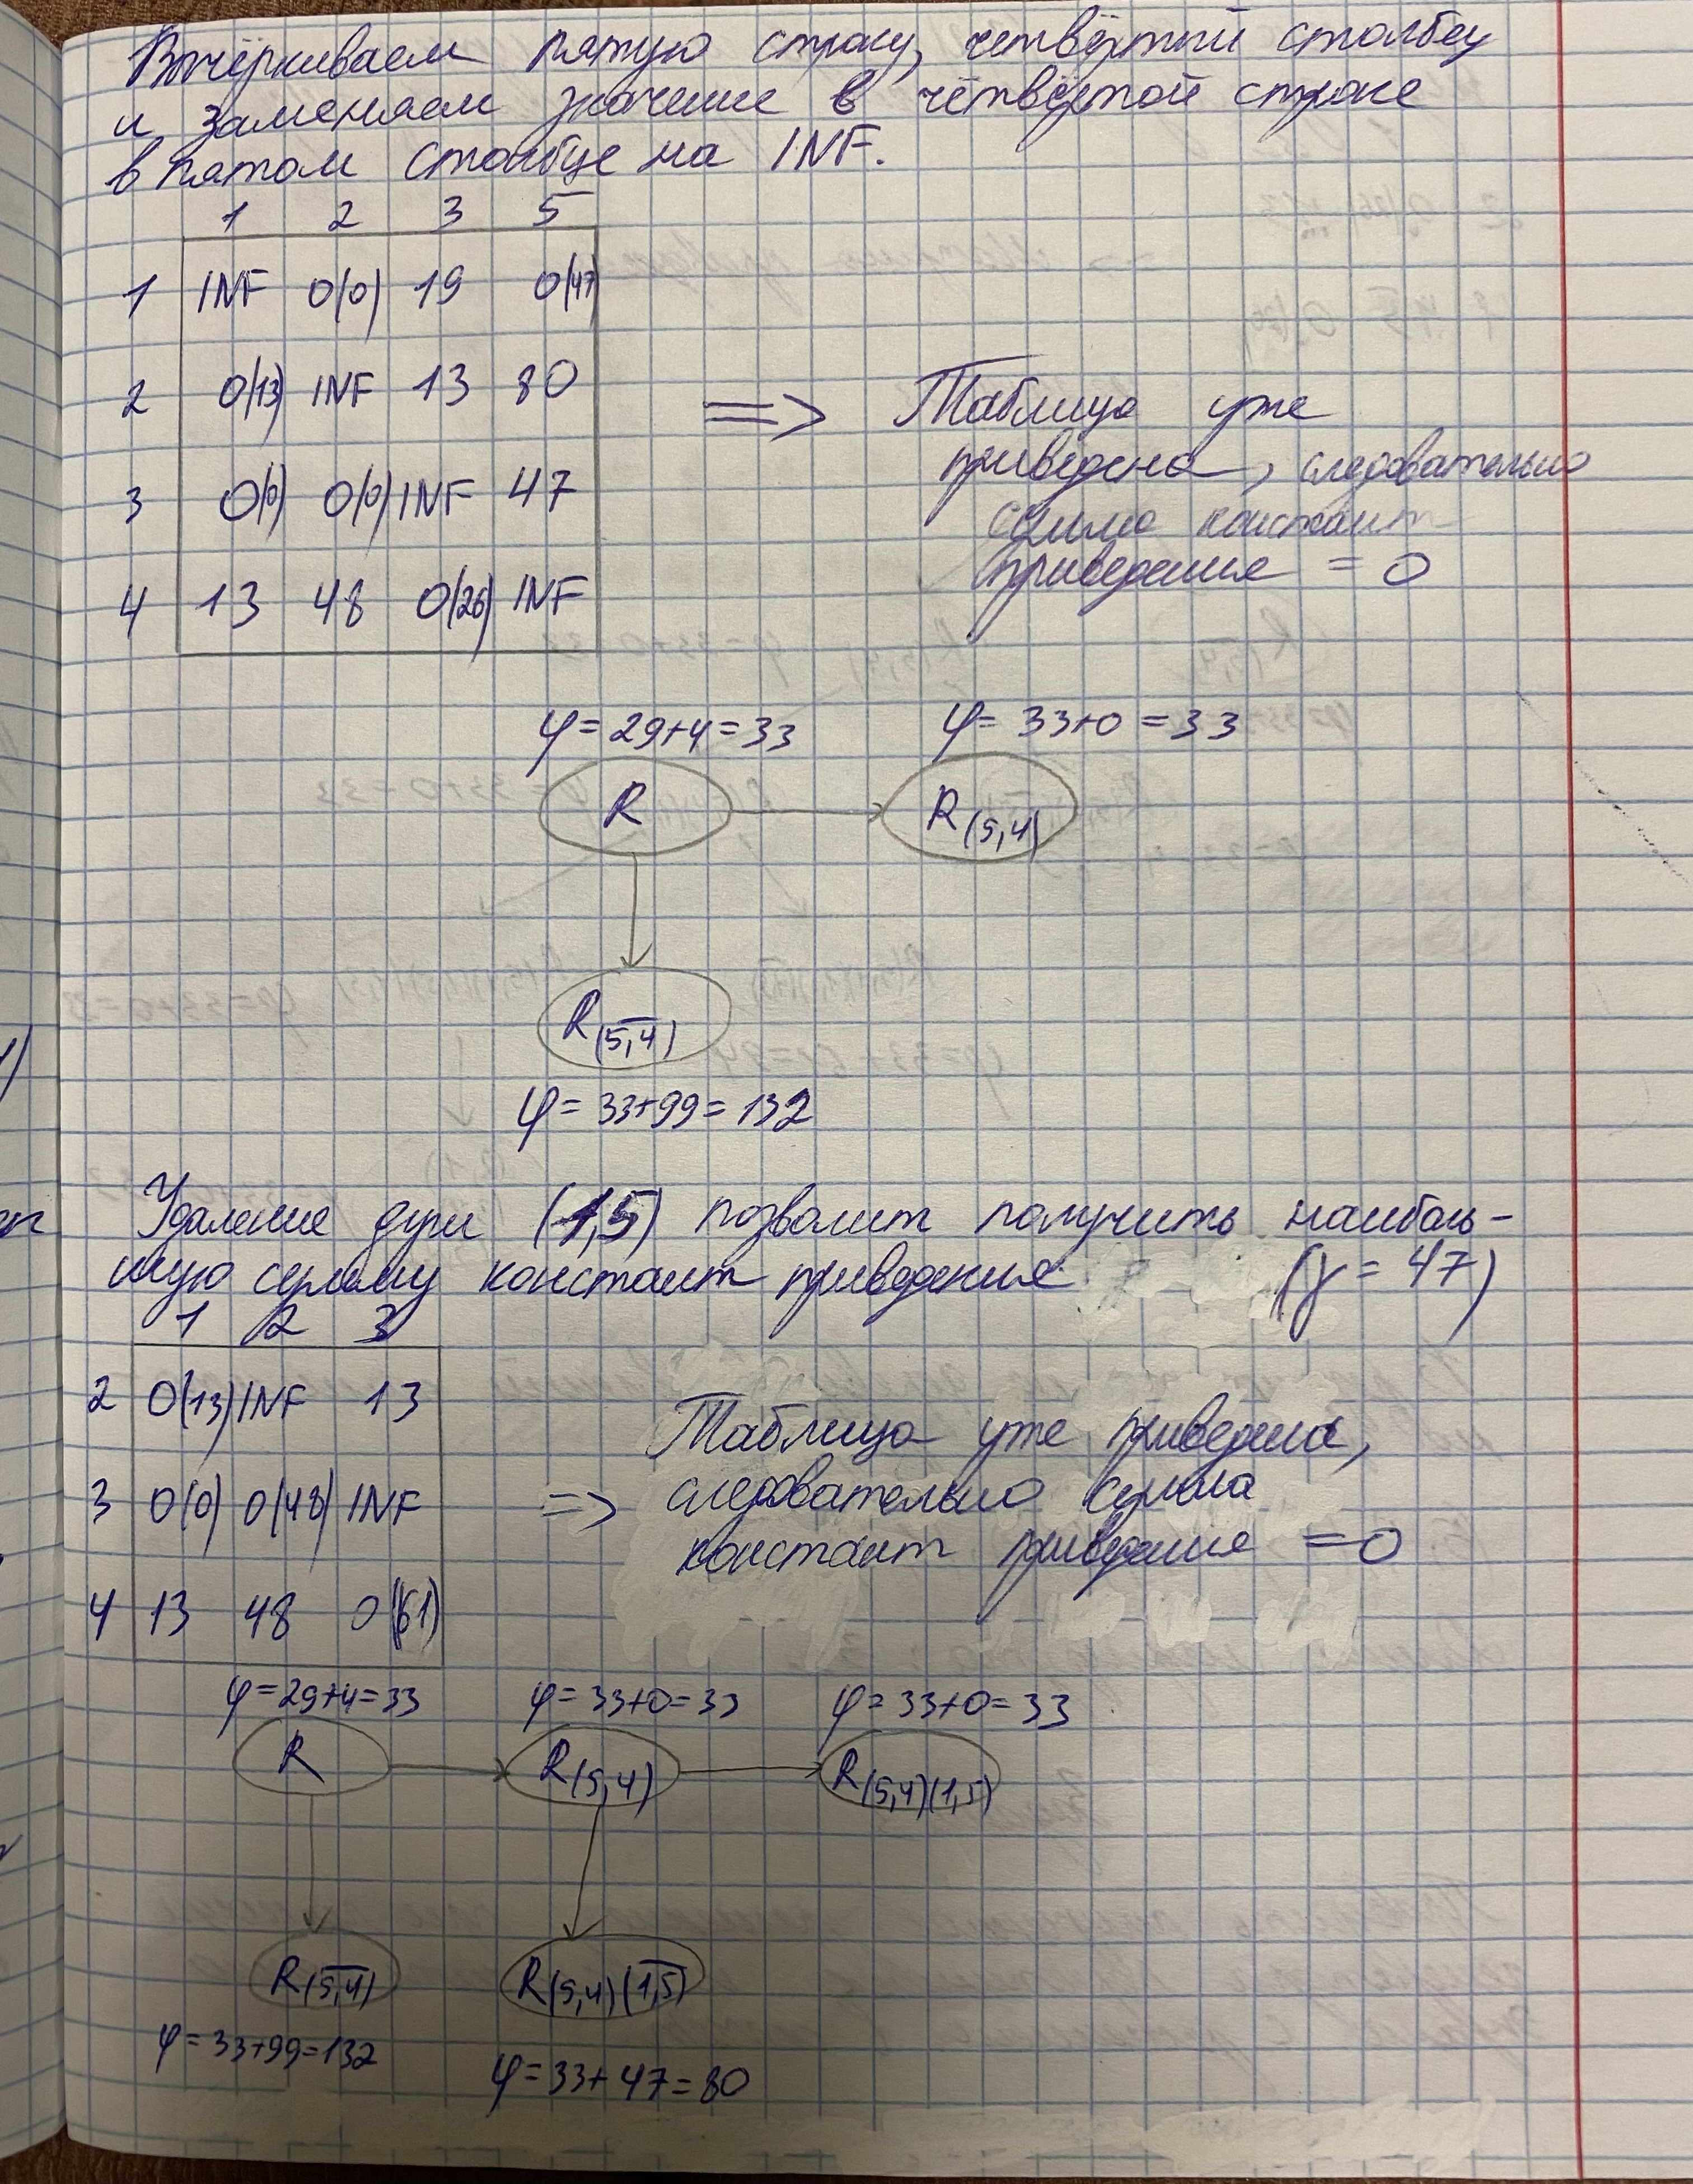 Вычёркиваем пятую строку, четвёртый столбец
и заменяем значение в четвёртой строке
в пятом столбце на INF.
1 2 3 5
1 INF 0(0) 19 0(47)
2 0(13) INF 13 80
3 0(0) 0(0) INF 47
4 13 48 0(26) INF
=> Таблица уже
приведена, следовательно
сумма констант
приведения = 0
φ = 29+4 = 33 φ = 33+0 = 33
R R(5,4)
R(5,4)
φ = 33+99 = 132
Удаление дуги (1,5) позволит получить наиболь-
шую сумму констант приведения (γ = 47)
1 2 3
2 0(13) INF 13
3 0(0) 0(48) INF
4 13 48 0(61)
=> Таблица уже приведена,
следовательно сумма
констант приведения = 0
φ = 29+4 = 33 φ = 33+0 = 33 φ = 33+0 = 33
R R(5,4) R(5,4)(1,5)
R(5,4) R(5,4)(1,5)
φ = 33+99 = 132 φ = 33+47 = 80